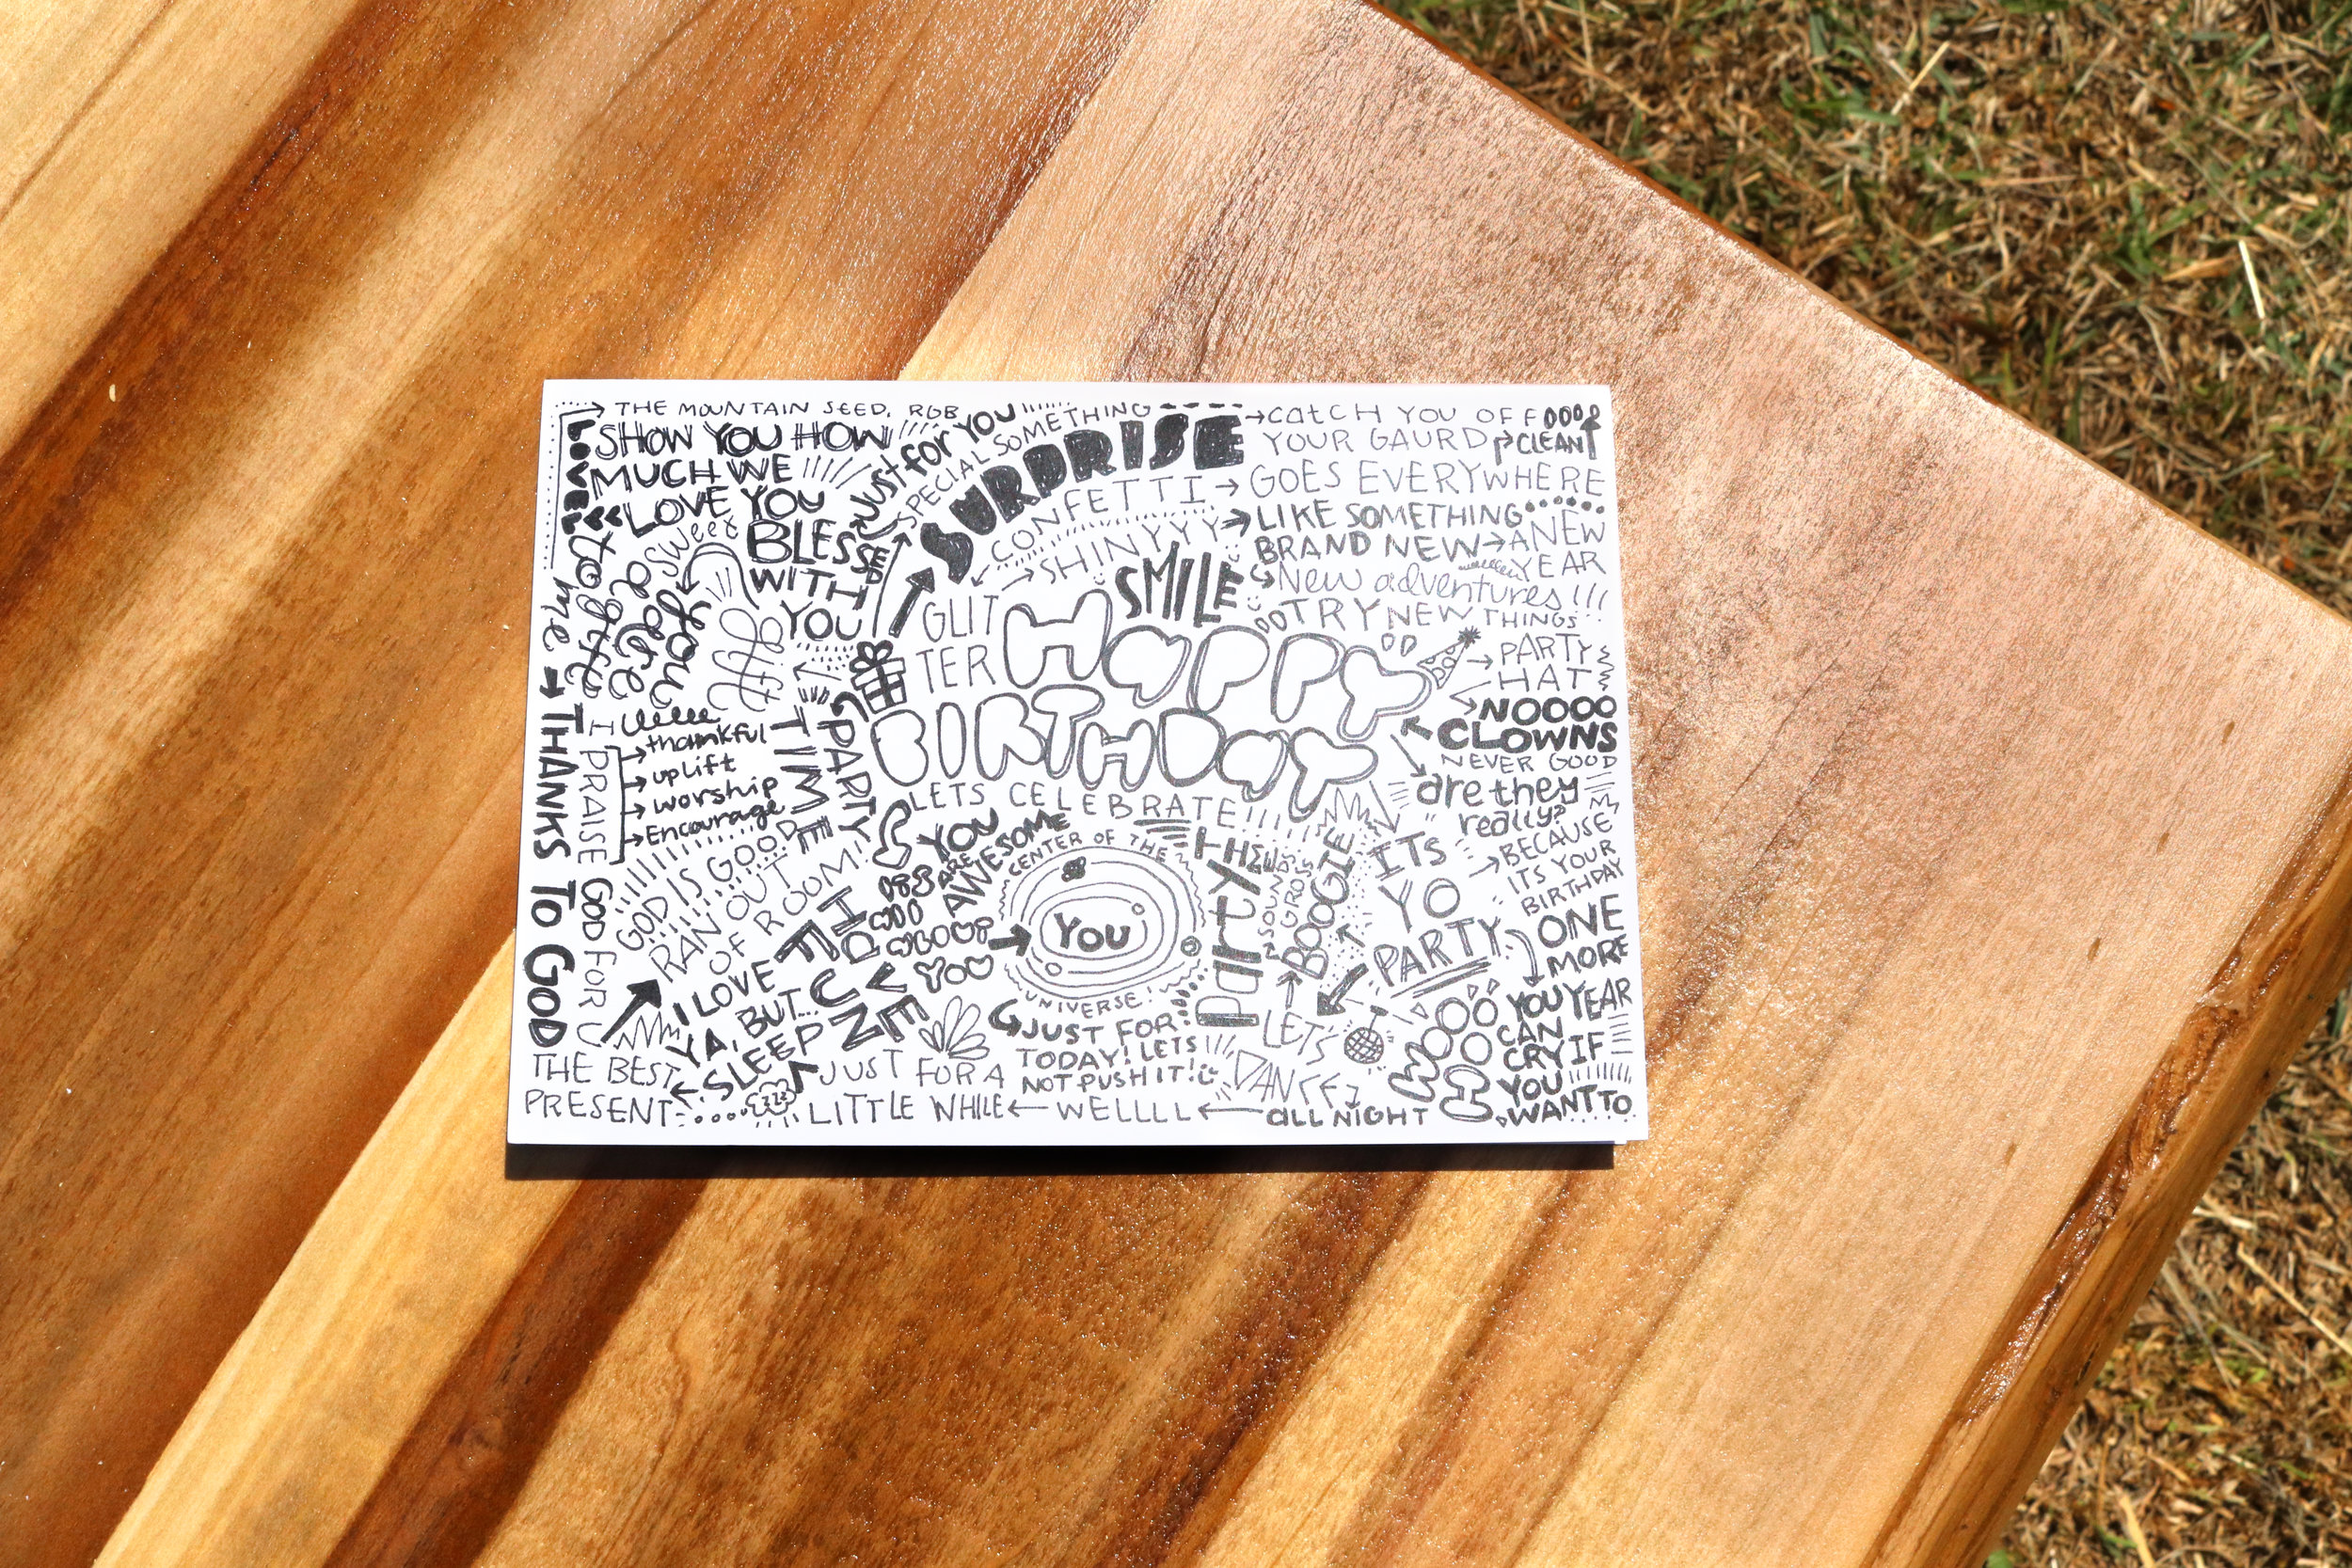 THE MOUNTAIN SEED, RGB
LOVE
SHOW YOU HOW
MUCH WE
LOVE YOU
to gether
me
adore
you
sweet
gift
BLESSED
WITH
YOU
Just for YOU
SPECIAL SOMETHING
SURPRISE
CATCH YOU OFF
YOUR GAURD
CLEAN
CONFETTI
GOES EVERYWHERE
SHINYYY
LIKE SOMETHING
BRAND NEW
A NEW
YEAR
SMILE
New adventures!!!
TRY NEW THINGS
GLIT
TER
HAPPY
BIRTHDAY
PARTY
HAT
NOOOO
CLOWNS
NEVER GOOD
are they
really?
LETS CELEBRATE!!!!
THANKS TO GOD
I PRAISE GOD FOR U
thankful
uplift
worship
Encourage
GOD IS GOOD
RAN OUT
OF ROOM!
PARTY
TIME
HAVE
FUN
YOU
ARE
AWESOME
CENTER OF THE
UNIVERSE!
YOU
YOU
THE
Party
SOUNDS
GROSS
BOOGIE
ITS
YO
PARTY
BECAUSE
ITS YOUR
BIRTHDAY
ONE
MORE
YEAR
WOOO
HOO
YOU
CAN
CRY IF
YOU
WANT TO
LETS
DANCE
ALL NIGHT
WELLLL
JUST FOR
TODAY! LETS
NOT PUSH IT!
JUST FOR A
LITTLE WHILE
I LOVE
YA, BUT...
SLEEP
ZZZ
THE BEST
PRESENT